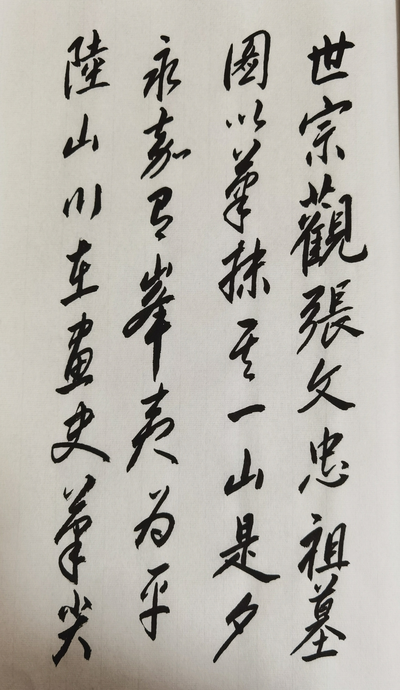 世宗觀張文忠祖墓
圖以筆抹其一山是夕
永嘉間峯夷為平
陸山川在畫史筆尖